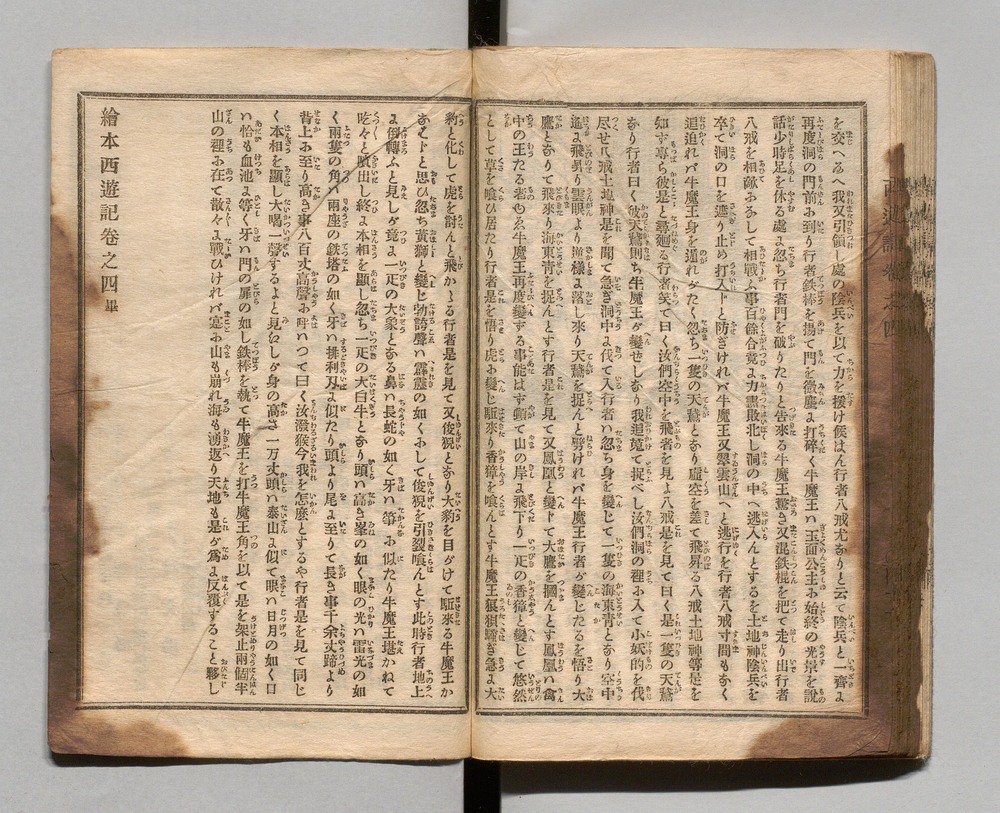 を交へるへ我又引領し處の陰兵を以て力を援け候はん行者八戒尤なりと云て陰兵と一齊に
再度洞の門前に到り行者鉄棒を揚て門を微塵に打碎く牛魔王は玉面公主に始終の光景を說
話少時足を休る處に忽ち行者門を破りたりと告來る牛魔王驚き又混鉄棍を把て走り出行者
八戒を相敵になして相戰ふ事百餘合竟に力羸敗北し洞の中へ逃入んとするを土地神陰兵を
卒て洞の口を遮り止め打入じと防ぎければ牛魔王又翠雲山へと逃行を行者八戒寸間もなく
追迫れば牛魔王身を遁れがたく忽ち一隻の天鵞となり虛空を差して飛昇る八戒土地神等是を
知ず專ら彼是と尋廻る行者笑て曰く汝們空中を飛者を見よ八戒是を見て曰く是一隻の天鵞
なり行者曰く彼天鵞則ち牛魔王が變せしなり我追蒐て捉べし汝們洞の裡に入て小妖的を伐
尽せ八戒土地神是を聞て急ぎ洞中に伐て入行者は忽ち身を變じて一隻の海東青となり空中
遙に飛昇り雲眼より逆様に落し來り天鵞を捉んと劈ければ牛魔王行者が變じたるを悟り大
鷹となりて飛來り海東青を捉んとす行者是を見て又鳳凰と變じて大鷹を摑んとす鳳凰は禽
中の王たる者ゆゑ牛魔王再度變ずる事能はず頓て山の岸に飛下り一疋の香獐と變じて悠然
として草を喰ひ居たり行者是を悟り虎に變じ駈來り香獐を喰んとす牛魔王狼狽騒ぎ急に大
豹と化して虎を討んと飛かゝる行者是を見て又俊猊となり大豹を目がけて駈來る牛魔王か
なはじと思ひ忽ち黃獅と變じ勃誇聲は霹靂の如くにして俊猊を引裂喰んとす此時行者地上
に倒轉ふと見しが竟に一疋の大象となる鼻は長蛇の如く牙は筝に似たり牛魔王堪かねて
吃々と出し終に本相を顯し忽ち一疋の大白牛となり頭は高き峯の如く眼の光は雷光の如
く兩隻の角は兩座の鉄塔の如く牙は排利刃に似たり頭より尾に至りて長き事千余丈蹄より
背上に至り高き事八百丈高聲に呼はつて曰く汝潑猴今我を怎麽とするや行者是を見て同じ
く本相を顯し大喝一聲するよと見ゑしが身の高さ一万丈頭は泰山に似て眼は日月の如く口
は恰も血池に等く牙は門の扉の如し鉄棒を執て牛魔王を打牛魔王角を以て是を架止兩個半
山の裡に在て散々に戰ひければ寔に山も崩れ海も湧返り天地も是が爲に反覆すること夥し
繪本西遊記卷之四畢